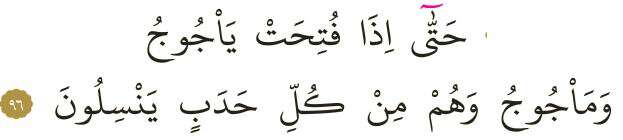 حَتّٰٓى اِذَا فُتِحَتْ يَاْجُوجُ
وَمَاْجُوجُ وَهُمْ مِنْ كُلِّ حَدَبٍ يَنْسِلُونَ ٩٦